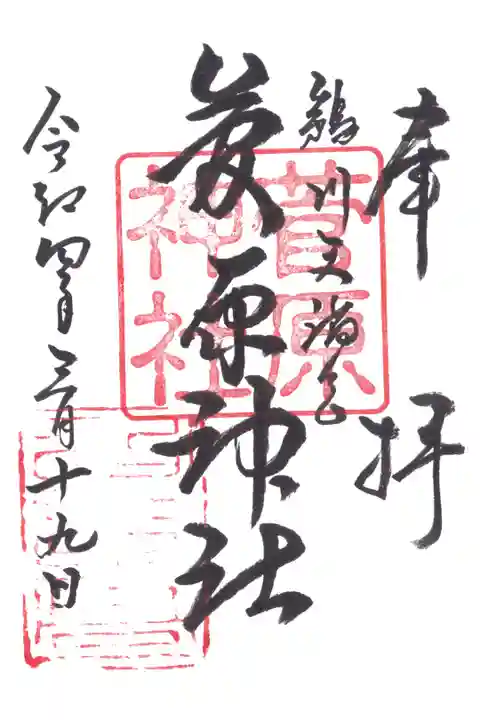 奉拝
鶴川天満宮
菅原神社
菅原
神社
令和四年三月十九日